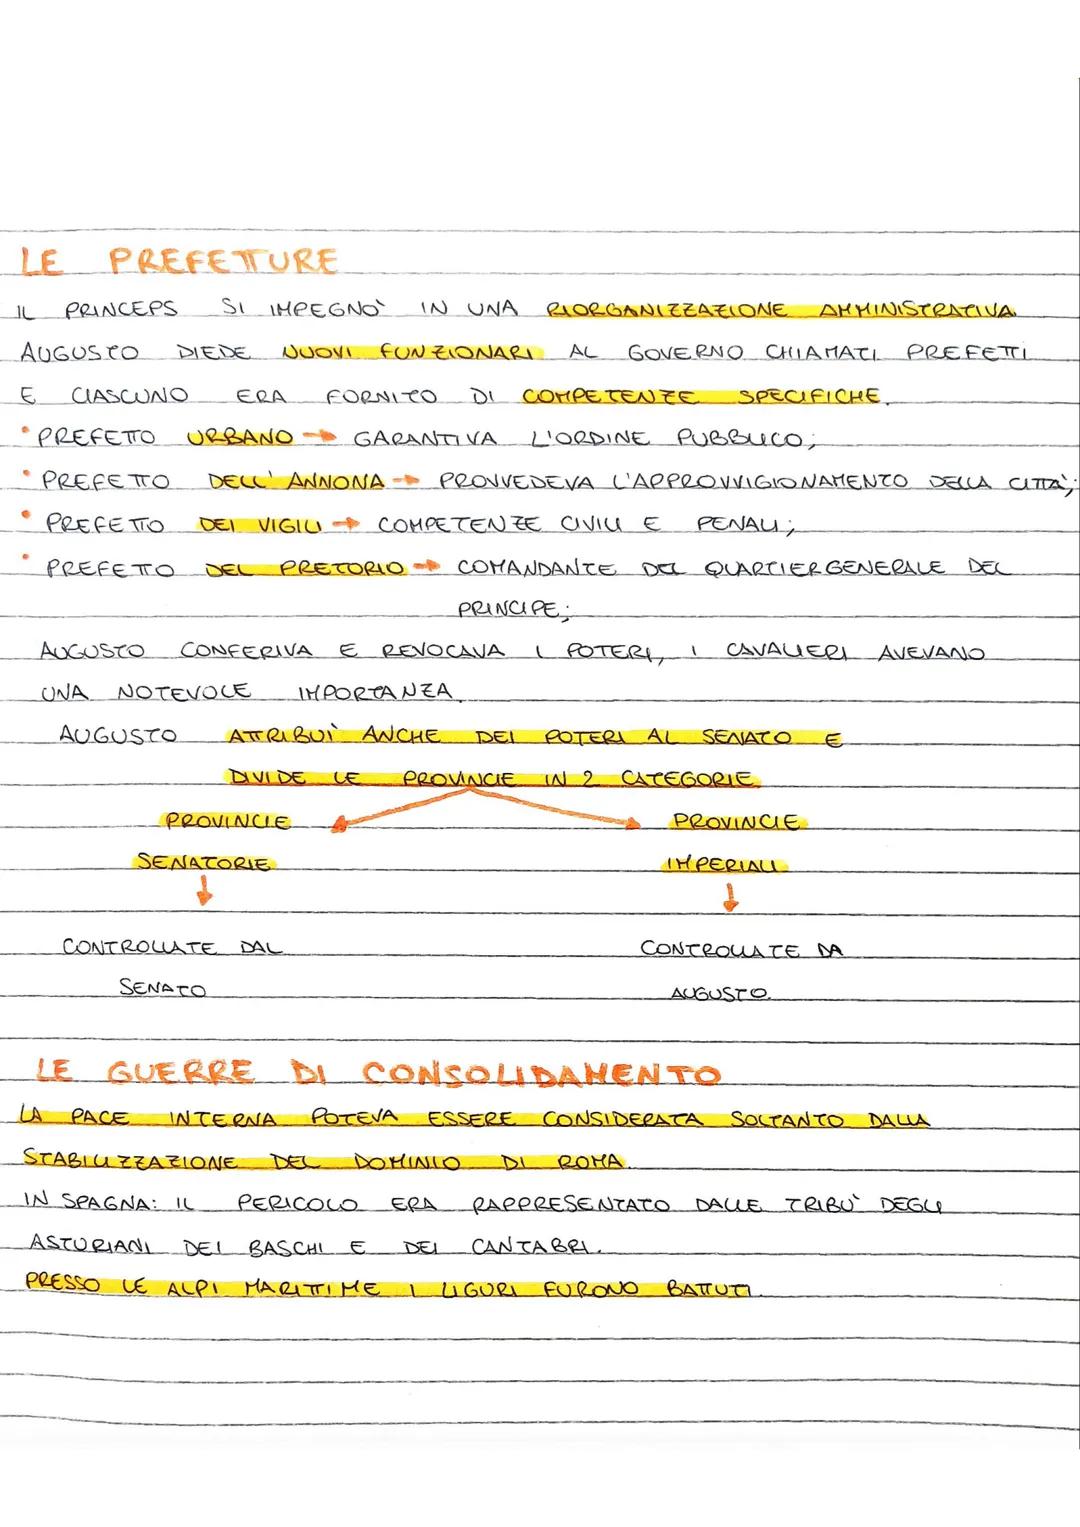 LE PREFETTURE
IL PRINCEPS SI IMPEGNÒ IN UNA RIORGANIZZAZIONE AMMINISTRATIVA.
AUGUSTO DIEDE NUOVI FUNZIONARI AL GOVERNO CHIAMATI PREFETTI
E CIASCUNO ERA FORNITO DI COMPETENZE SPECIFICHE.
• PREFETTO URBANO → GARANTIVA L'ORDINE PUBBLICO;
• PREFETTO DELL'ANNONA → PROVVEDEVA L'APPROVVIGIONAMENTO DELLA CITTÀ;
• PREFETTO DEI VIGILI → COMPETENZE CIVILI E PENALI;
• PREFETTO DEL PRETORIO → COMANDANTE DEL QUARTIERGENERALE DEL
PRINCIPE;
AUGUSTO CONFERIVA E REVOCAVA I POTERI, I CAVALIERI AVEVANO
UNA NOTEVOLE IMPORTANZA.
AUGUSTO ATTRIBUÌ ANCHE DEI POTERI AL SENATO E
DIVIDE LE PROVINCIE IN 2 CATEGORIE
PROVINCIE PROVINCIE
SENATORIE IMPERIALI
CONTROLLATE DAL CONTROLLATE DA
SENATO AUGUSTO.
LE GUERRE DI CONSOLIDAMENTO
LA PACE INTERNA POTEVA ESSERE CONSIDERATA SOLTANTO DALLA
STABILIZZAZIONE DEL DOMINIO DI ROMA.
IN SPAGNA: IL PERICOLO ERA RAPPRESENTATO DALLE TRIBÙ DEGLI
ASTURIANI DEI BASCHI E DEI CANTABRI.
PRESSO LE ALPI MARITTIME I LIGURI FURONO BATTUTI.